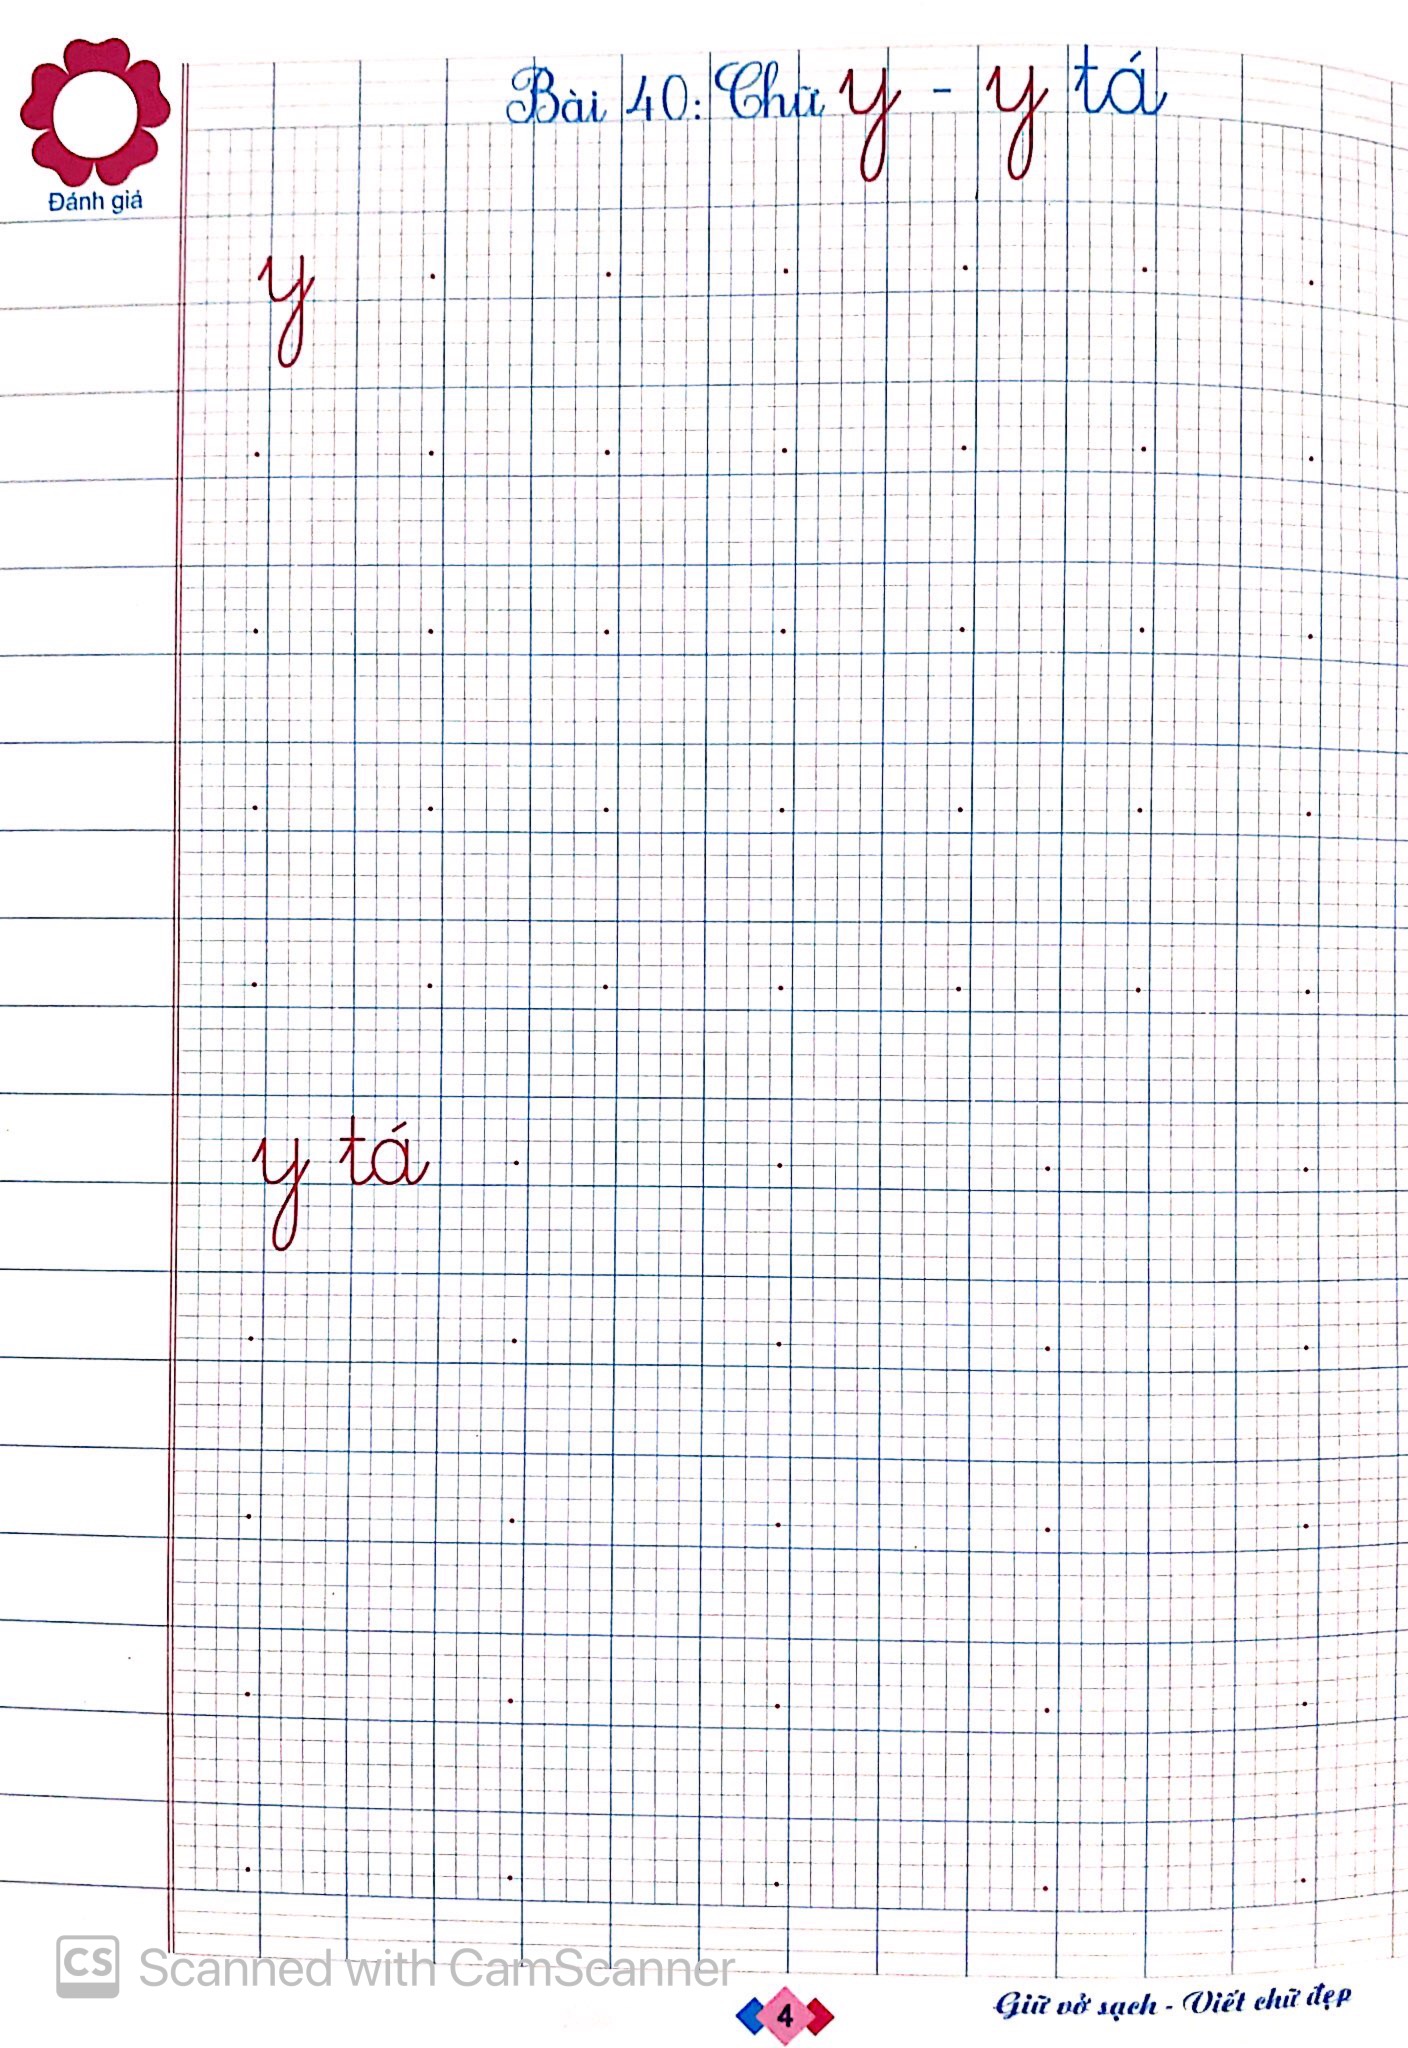 Bài 40: Chữ y - y tá
Đánh giá
y
y tá
CS Scanned with CamScanner
4
Giữ vở sạch - Viết chữ đẹp